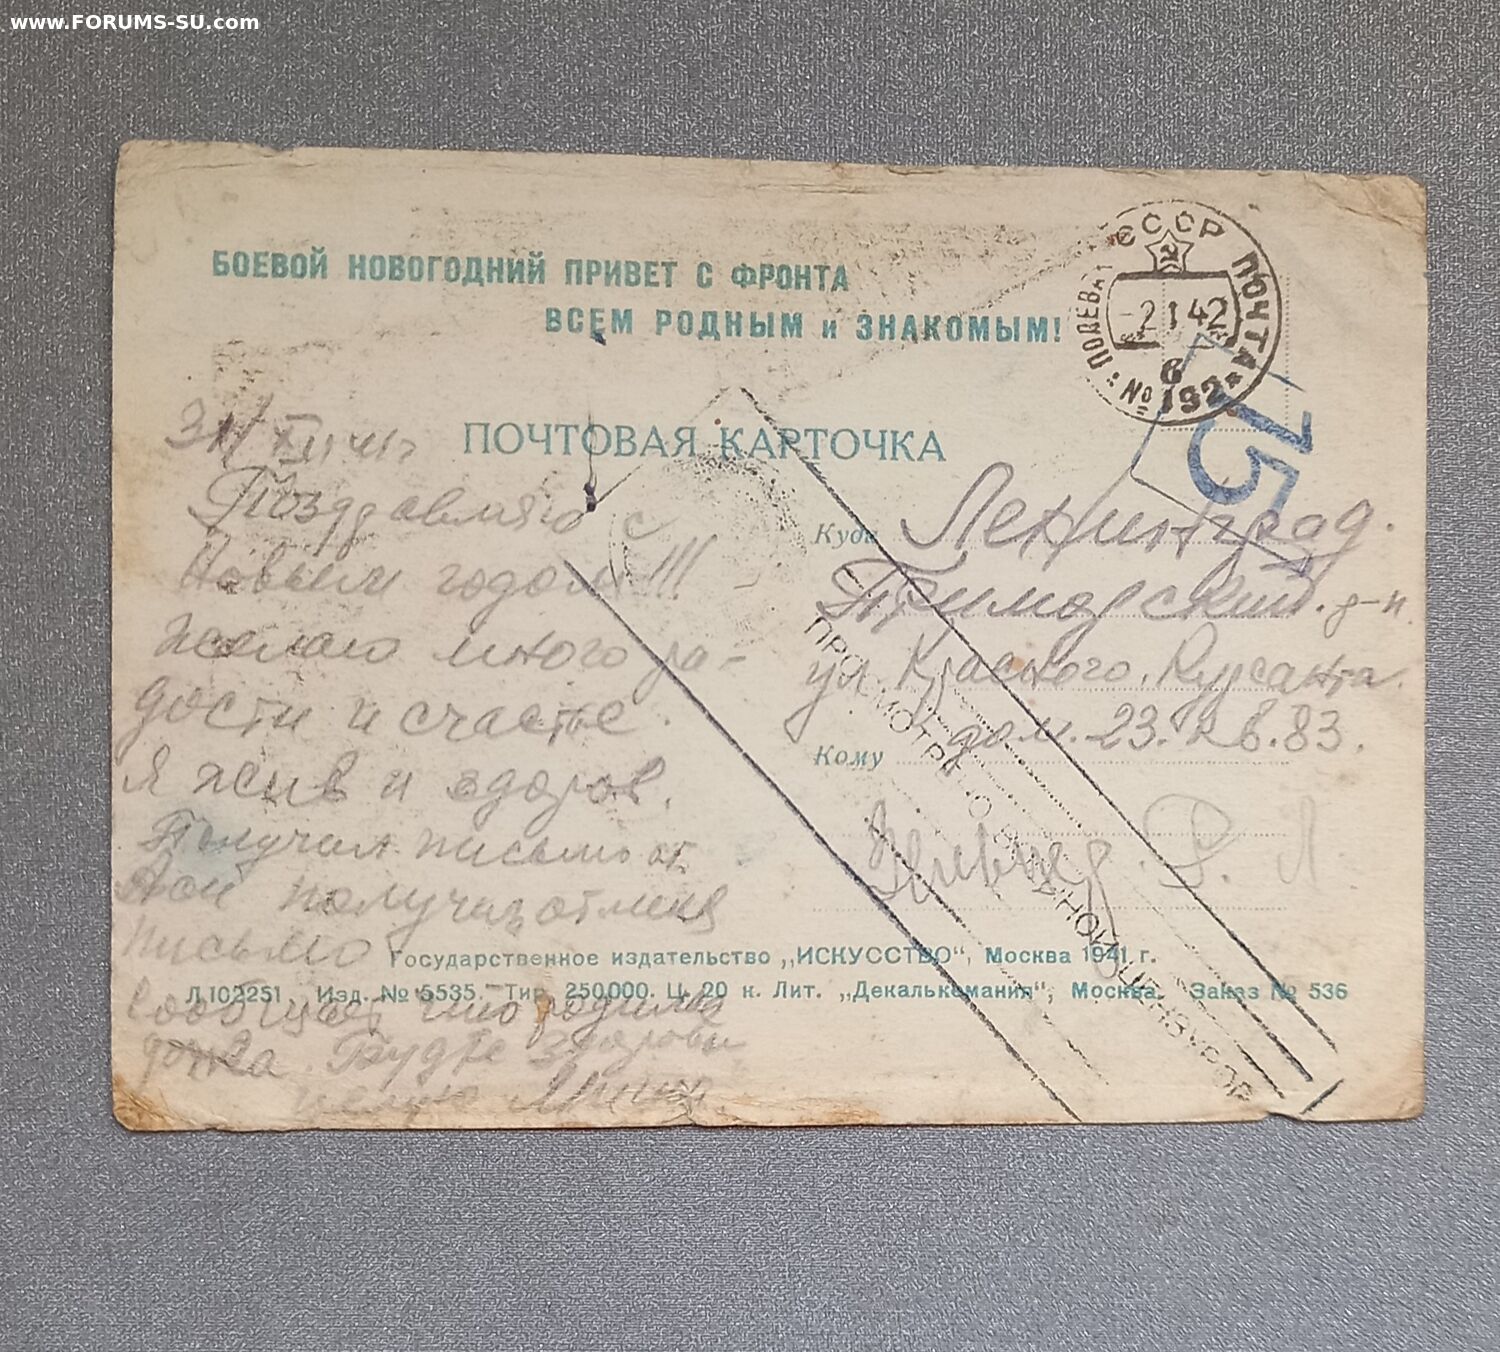 www.FORUMS-SU.com
БОЕВОЙ НОВОГОДНИЙ ПРИВЕТ С ФРОНТА
ВСЕМ РОДНЫМ и ЗНАКОМЫМ!
СССР ПОЧТА
ПОЛЕВАЯ
-2 1 42
6
№ 192
15
ПОЧТОВАЯ КАРТОЧКА
31/XII 41г
Поздравляю с
Новым годом!!!
Желаю много ра-
дости и счастье.
Я жив и здоров.
Получил письмо от
получил от меня
письмо
сообщает что родилась
дочка. Будте здоровы
целую
Куда Ленинград.
Приморский. р-н
ул. Красного. Курсанта.
дом. 23. кв. 83.
Кому
Р. Л
ПРОСМОТРЕНО ВОЕННОЙ ЦЕНЗУРОЙ
Государственное издательство „ИСКУССТВО“, Москва 1941 г.
Л102251. Изд. № 5535. Тир. 250000. Ц. 20 к. Лит. „Декалькомания“, Москва. Заказ № 536